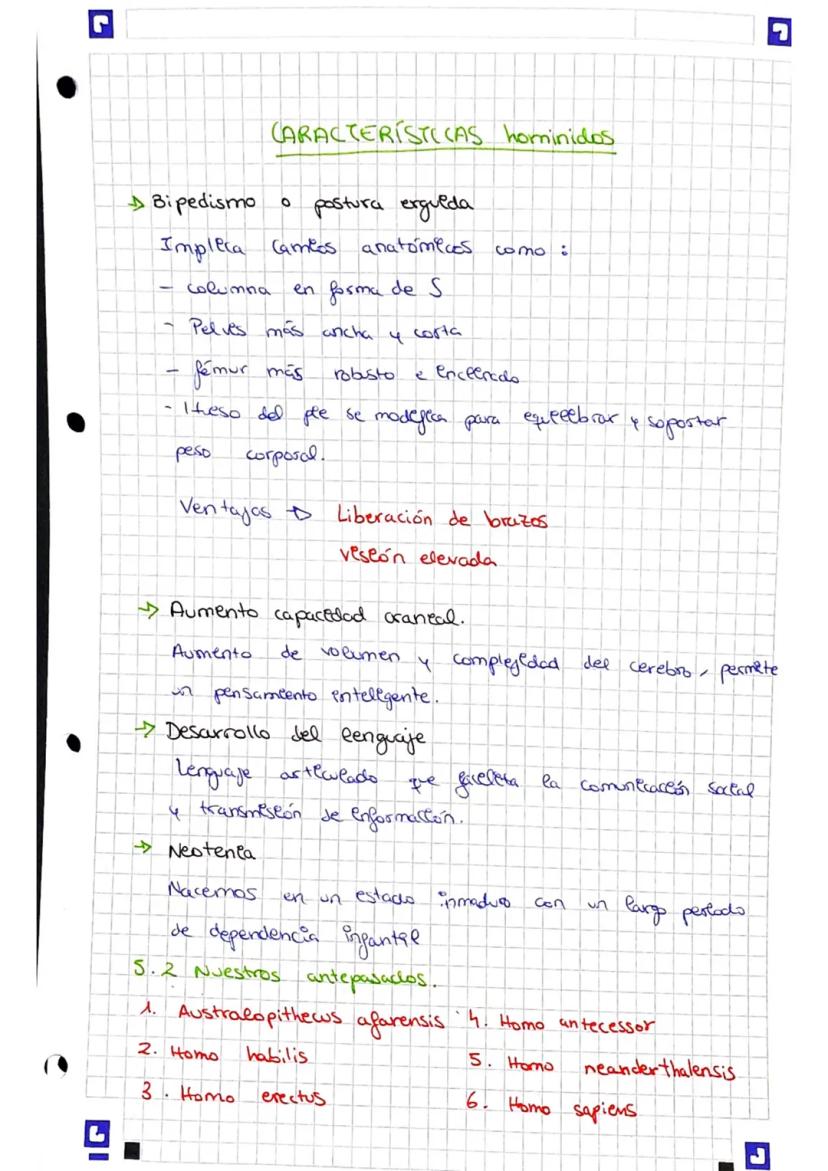 CARACTERÍSTICAS hominidos
→ Bipedismo o postura erguida
Implica cambios anatómicos como :
- columna en forma de S
- Pelvis más ancha y corta
- fémur más robusto e inclinado
- Hueso del pie se modifica para equilibrar y soportar
peso corporal.
Ventajas → Liberación de brazos
visión elevada
→ Aumento capacidad craneal.
Aumento de volumen y complejidad del cerebro, permite
un pensamiento inteligente.
→ Desarrollo del lenguaje
Lenguaje articulado que facilita la comunicación social
y transmisión de información.
→ Neotenia
Nacemos en un estado inmaduro con un largo periodo
de dependencia infantil
5.2 Nuestros antepasados.
1. Australopithecus afarensis 4. Homo antecessor
2. Homo habilis 5. Homo neanderthalensis
3. Homo erectus 6. Homo sapiens